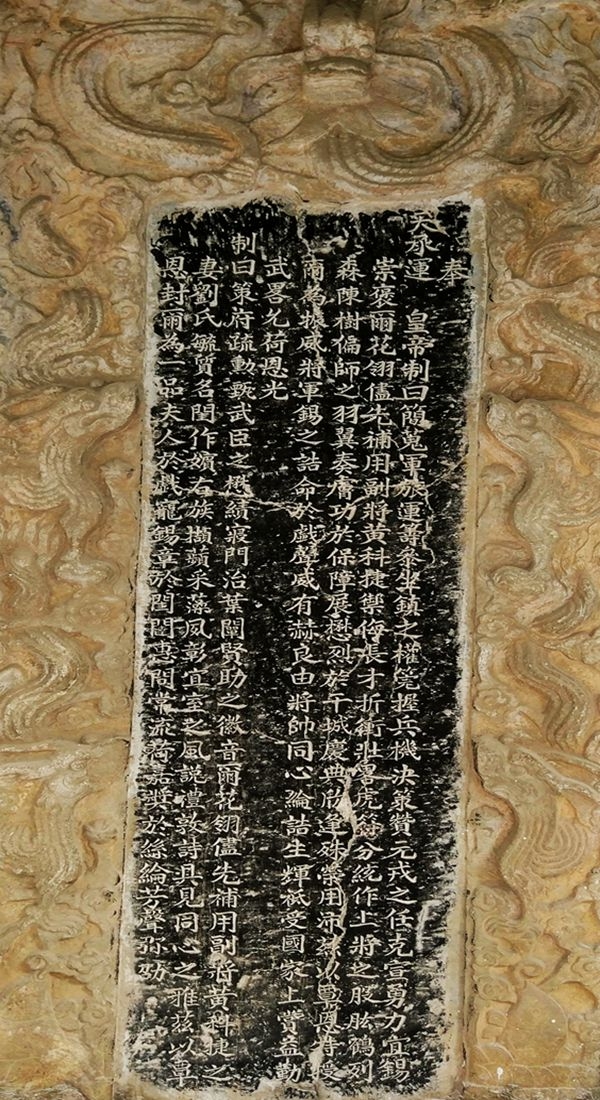 奉
天承運　皇帝制曰簡蒐軍旅運籌參坐鎮之權筦握兵機決策贊元戎之任克宣勇力宜錫
崇褒爾花翎儘先補用副將黃科捷禦侮長才折衝壯畧虎節分統作上將之股肱鶴列
森陳樹偏師之羽翼奏膚功於保障展懋烈於干城慶典欣逢殊榮用沛茲以覃恩特授
爾為振威將軍錫之誥命於戲聲威有赫良由將帥同心綸誥生輝祗受國家上賞益勤
武畧允荷恩光
制曰策府疏勳甄武臣之懋績寢門治業闡賢助之徽音爾花翎儘先補用副將黃科捷之
妻劉氏毓質名閨作嬪右族擷蘋采藻夙彰宜室之風說禮敦詩具見同心之雅茲以覃
恩封爾為一品夫人於戲龍錫章於閨閫惠問常流荷嘉獎於絲綸芳聲弥劭